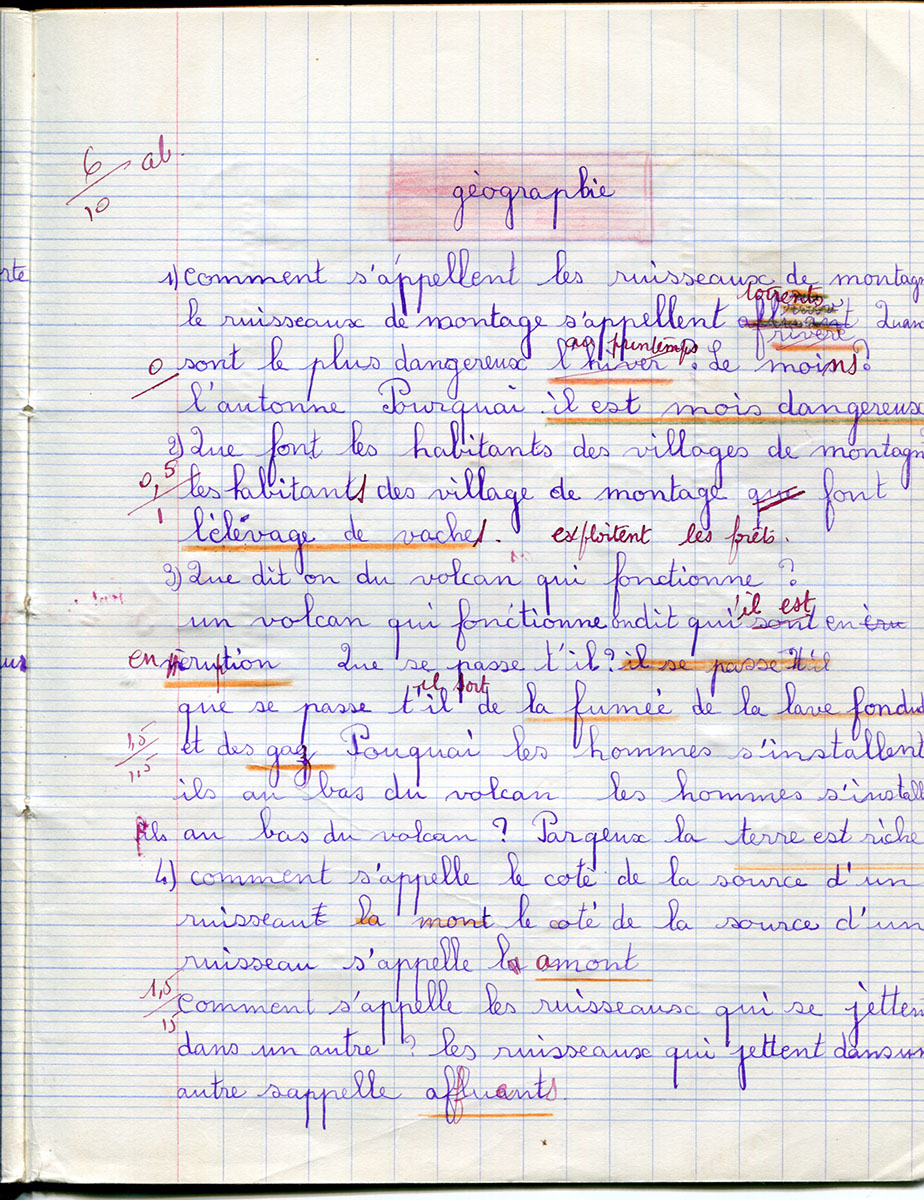 6/10 ab.
géographie
rte
1) comment s'appellent les ruisseaux de montagn
torrents
le ruisseaux de montage s'appellent Quan
rivère
au printemps
0 sont le plus dangereux l'hiver. Le moins?
l'autonne Pourquai il est mois dangereux
2) Que font les habitants des villages de montagn
0,5/1 les habitants des village de montage que font
l'élévage de vaches. exploitent les forêts.
3) Que dit on du volcan qui fonctionne ?
'il est
un volcan qui fonctionne on dit qui sont en éru
en éruption Que se passe t'il? il se passe t'il
il sort
que se passe t'il de la fumée de la lave fondu
1,5/1,5 et des gaz Pouquai les hommes s'installent
ils au bas du volcan les hommes s'install
ils au bas du volcan ? Pargeux la terre est riche
4) comment s'appelle le coté de la source d'un
ruisseaut la mont le coté de la source d'un
ruisseau s'appelle la amont
1,5/15 comment s'appelle les ruisseaux qui se jetten
dans un autre ? les ruisseaux qui jettent dans un
autre s'appelle affluants.